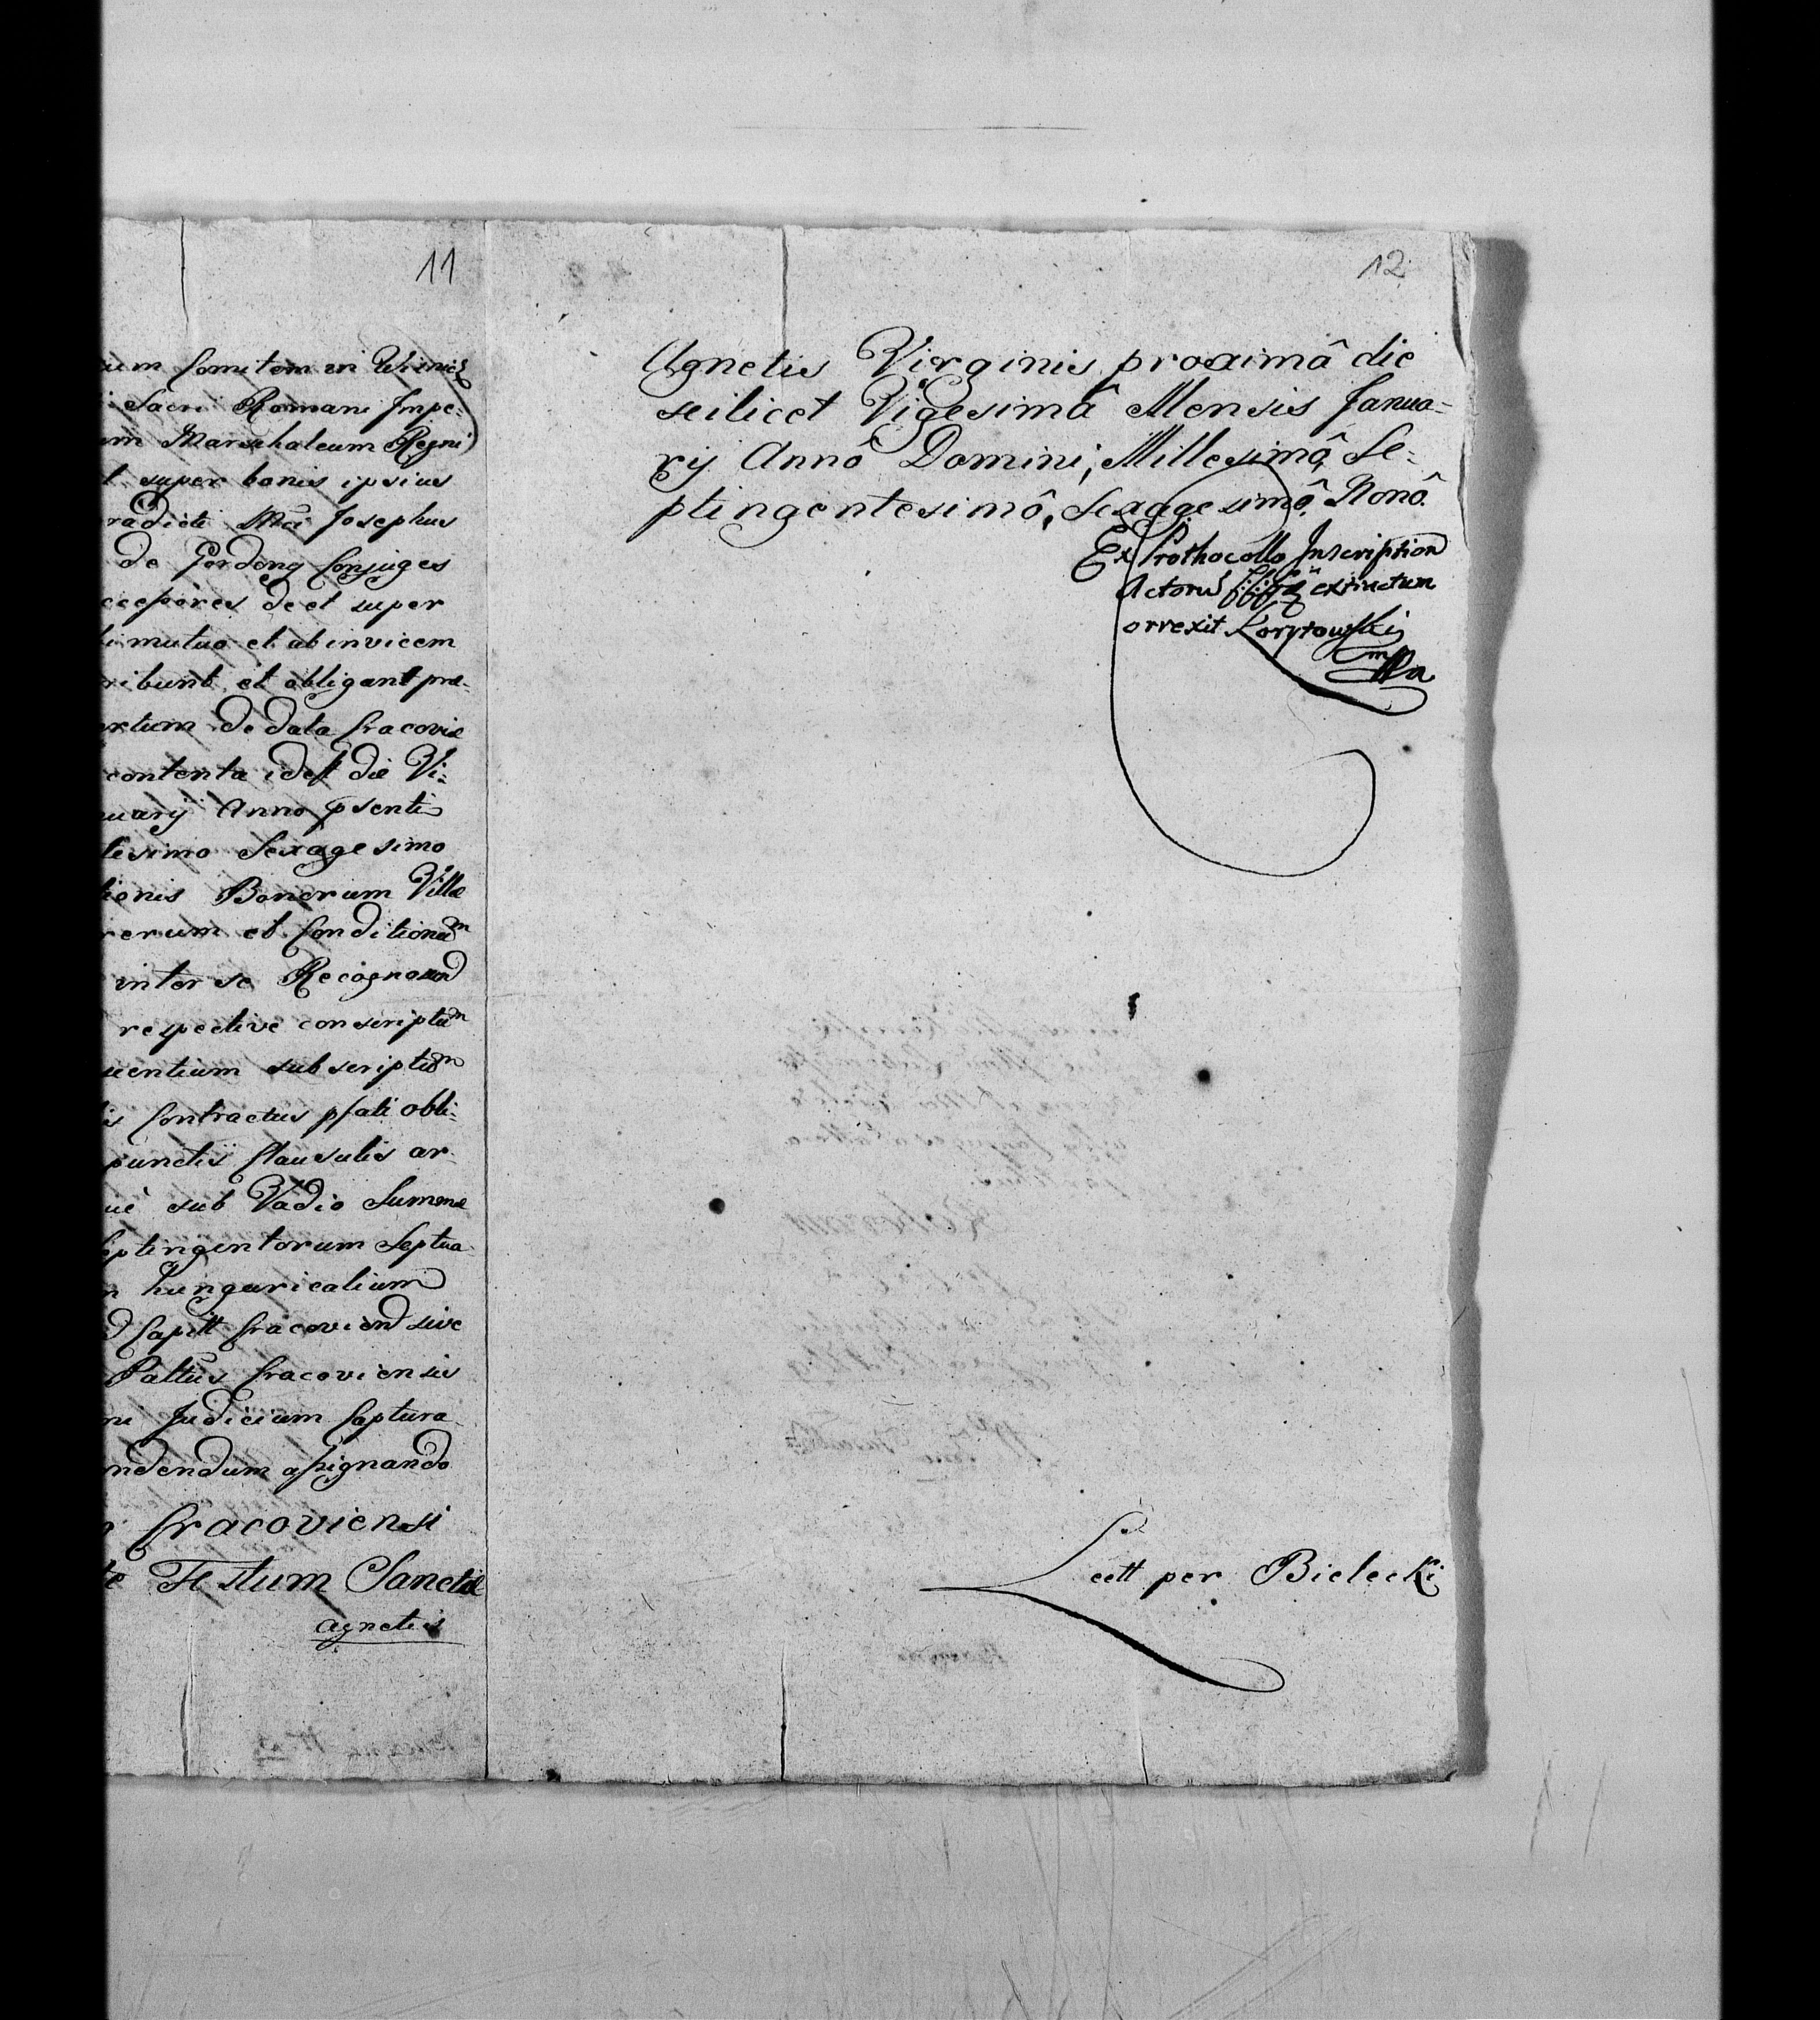 11
um Comitem in Wisnicz
Sacri Romani Impe-
m Marschalcum Regni
t super bonis ipsius
radicti Mci Josephus
de Pordeny Conjuges
de et super
mutuo et ab invicem
ribunt et obligant præ-
de data Cracoviæ
contenta idest die Vi-
uarij Anno psenti
lesimo Sexagesimo
tionis Bonorum Villæ
rerum et Conditionum
inter se
respective conscriptum
uentium subscriptum
is Contractus pfati obli-
punctis Clausulis ar-
ué sub Vadio Summæ
eptingentorum Septua-
hungaricalium
Capitt Cracovien sive
Pattus Cracoviensis
ni Judicium Captura-
ndendum assignando
Cracoviensi
te Festum Sanctæ
Agnetis
12
Agnetis Virginis proximâ die
scilicet Vigesimâ Mensis Janua-
rij Annô Domini, Millesimô, Se-
ptingentesimô, Sexagesimô Nonô.
Ex Prothocollo Inscription
Actorum extractum
orrexit Korytowski
mp
Lectt per Bielecki